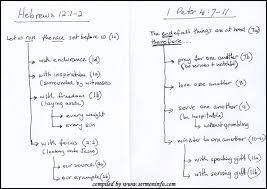 Hebrews 12:1-2
Let us run the race set before us (1e)
with endurance (1d)
with inspiration (1a)
(surrounded by witnesses
with freedom (1b)
(laying aside)
every weight
every sin
with focus (2a)
(looking unto Jesus)
our source (2b)
our example (2c)
I Peter 4:7-11
The end of all things are at hand (7a)
therefore...
pray for one another (7b)
(be serious + watchful)
love one another (8)
serve one another (9)
(hospitable)
without grumbling
minister to one another (10-11)
with speaking gift (11a)
with serving gift (11b)
compiled by www.sermoninfo.com